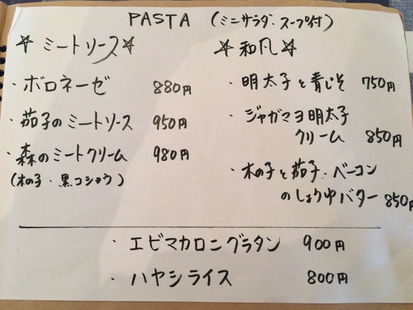 PASTA (ミニサラダ、スープ付)
☆ ミートソース☆
・ボロネーゼ 880円
・茄子のミートソース 950円
・森のミートクリーム 980円
(木の子・黒コショウ)
☆和風☆
・明太子と青じそ 750円
・ジャガマヨ明太子
クリーム 850円
・木の子と茄子・ベーコン
のしょうゆバター 850円
・エビマカロニグラタン 900円
・ハヤシライス 800円